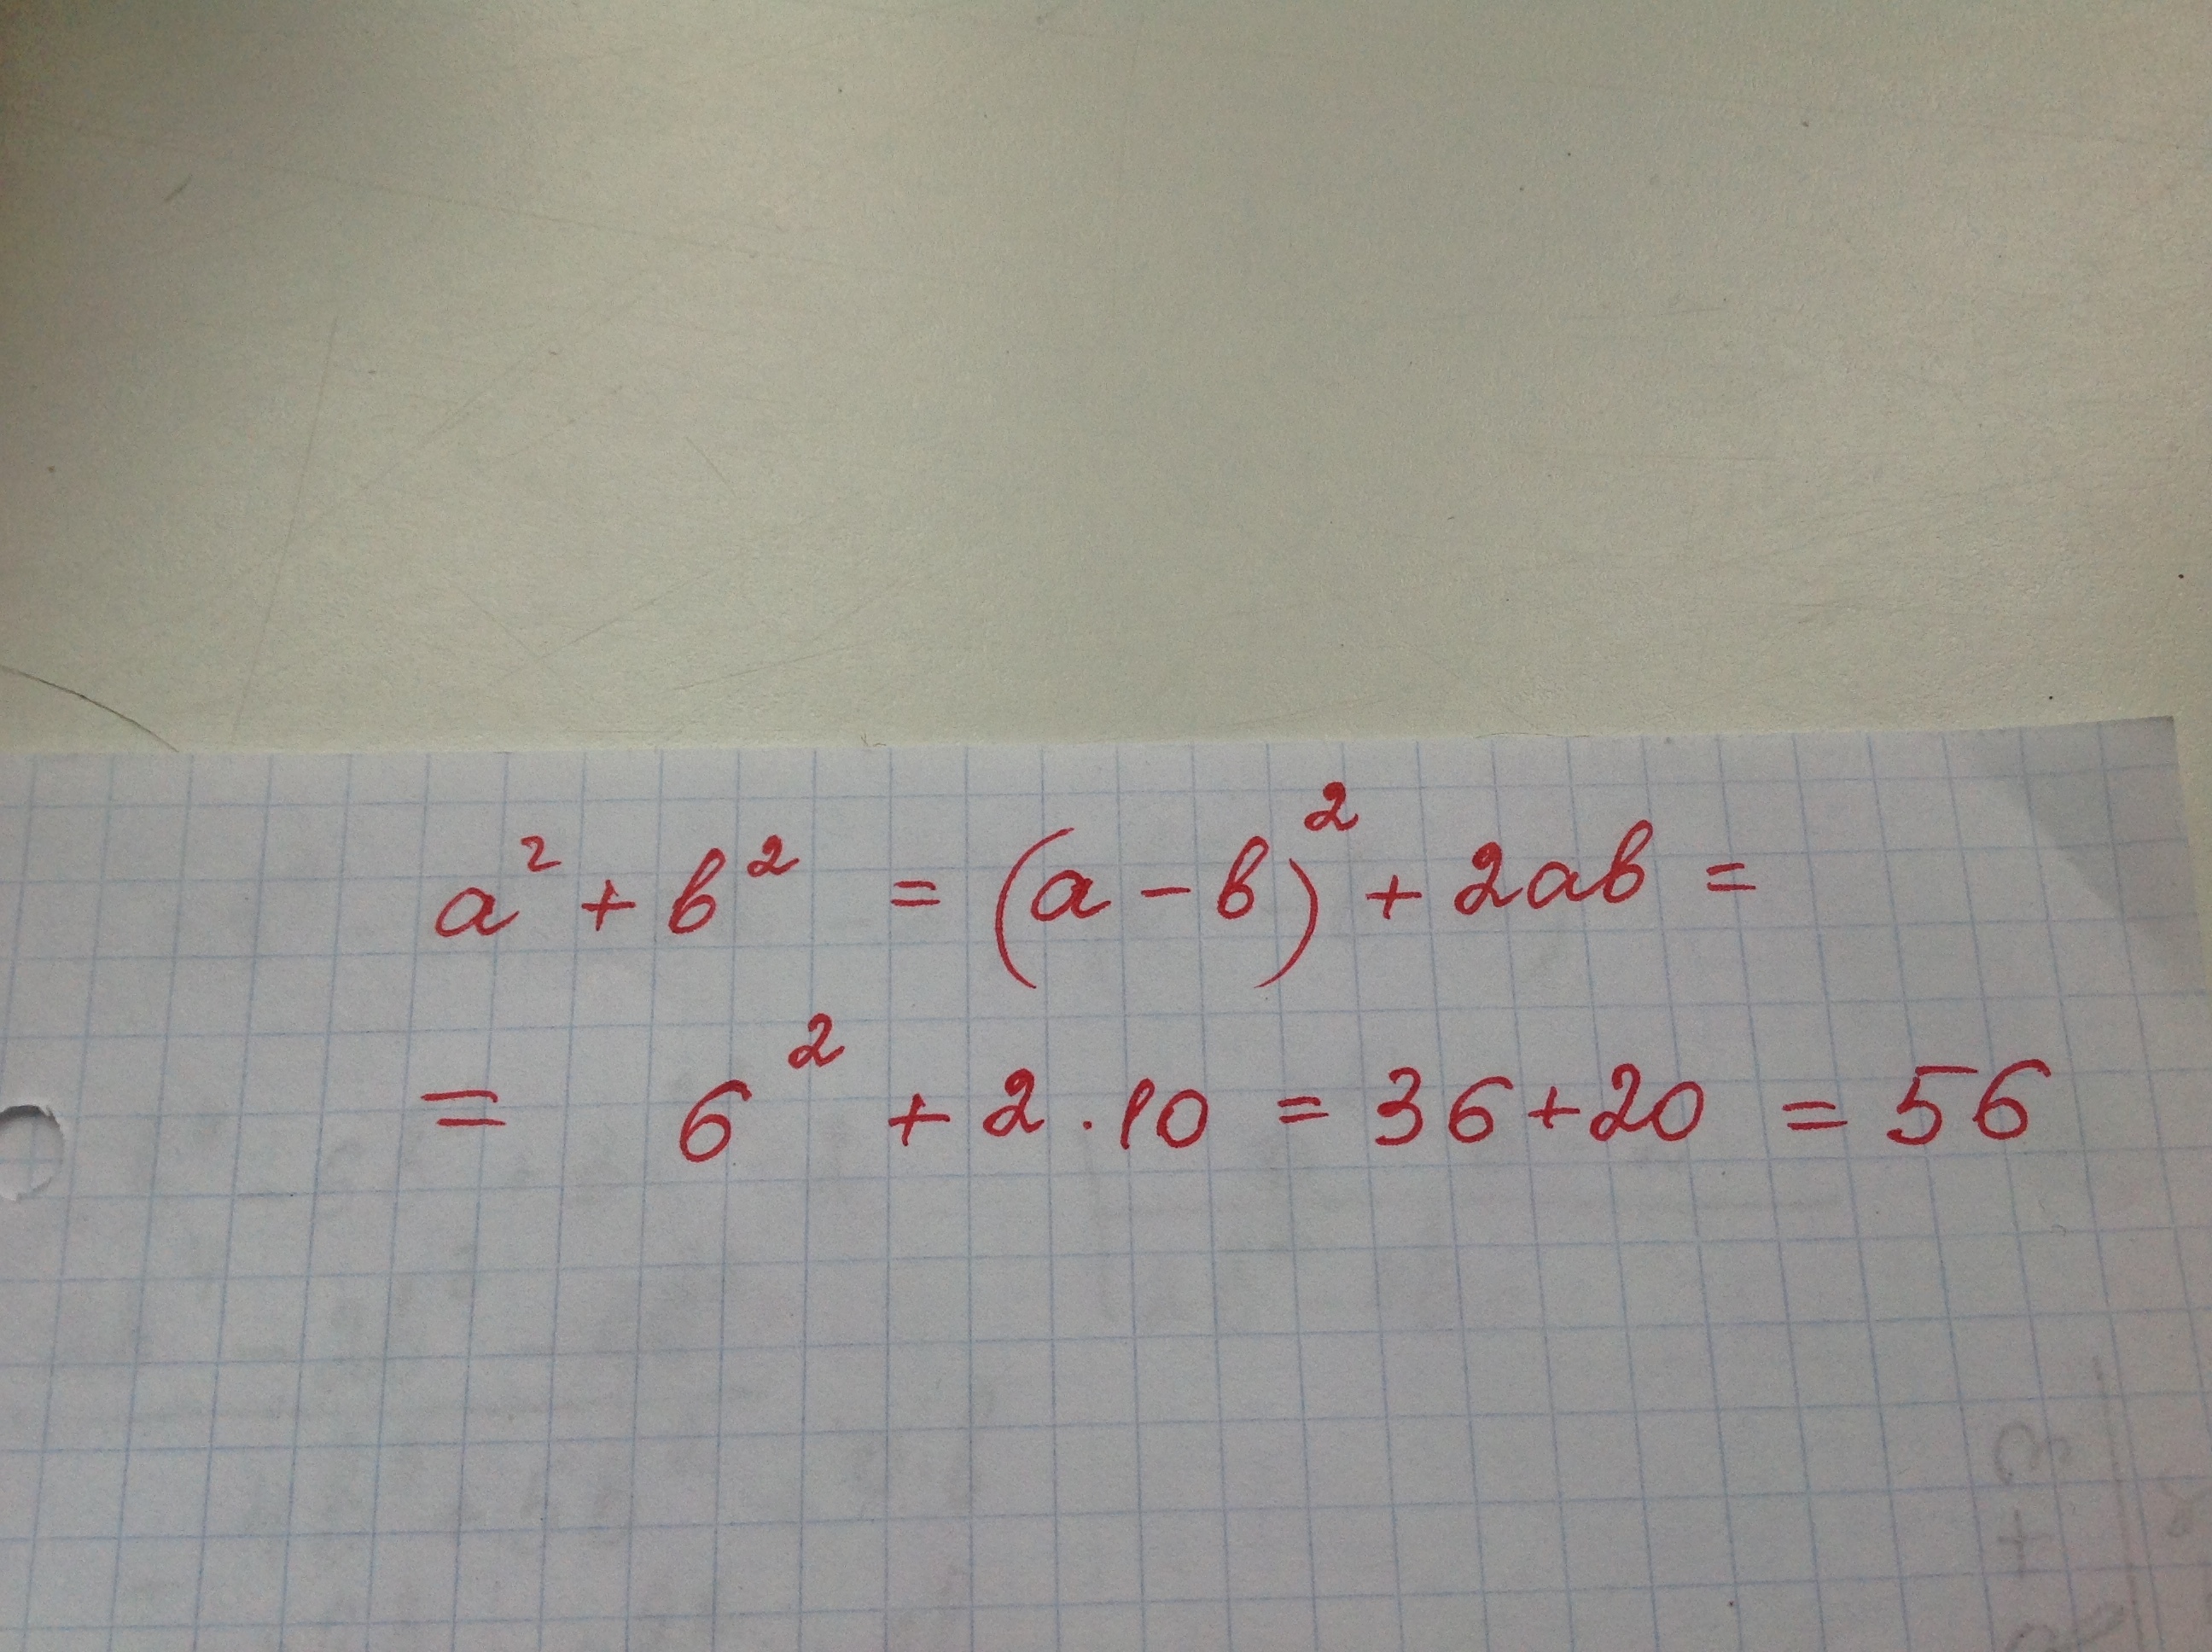 a² + b² = (a - b)² + 2ab =
= 6² + 2 . 10 = 36 + 20 = 56